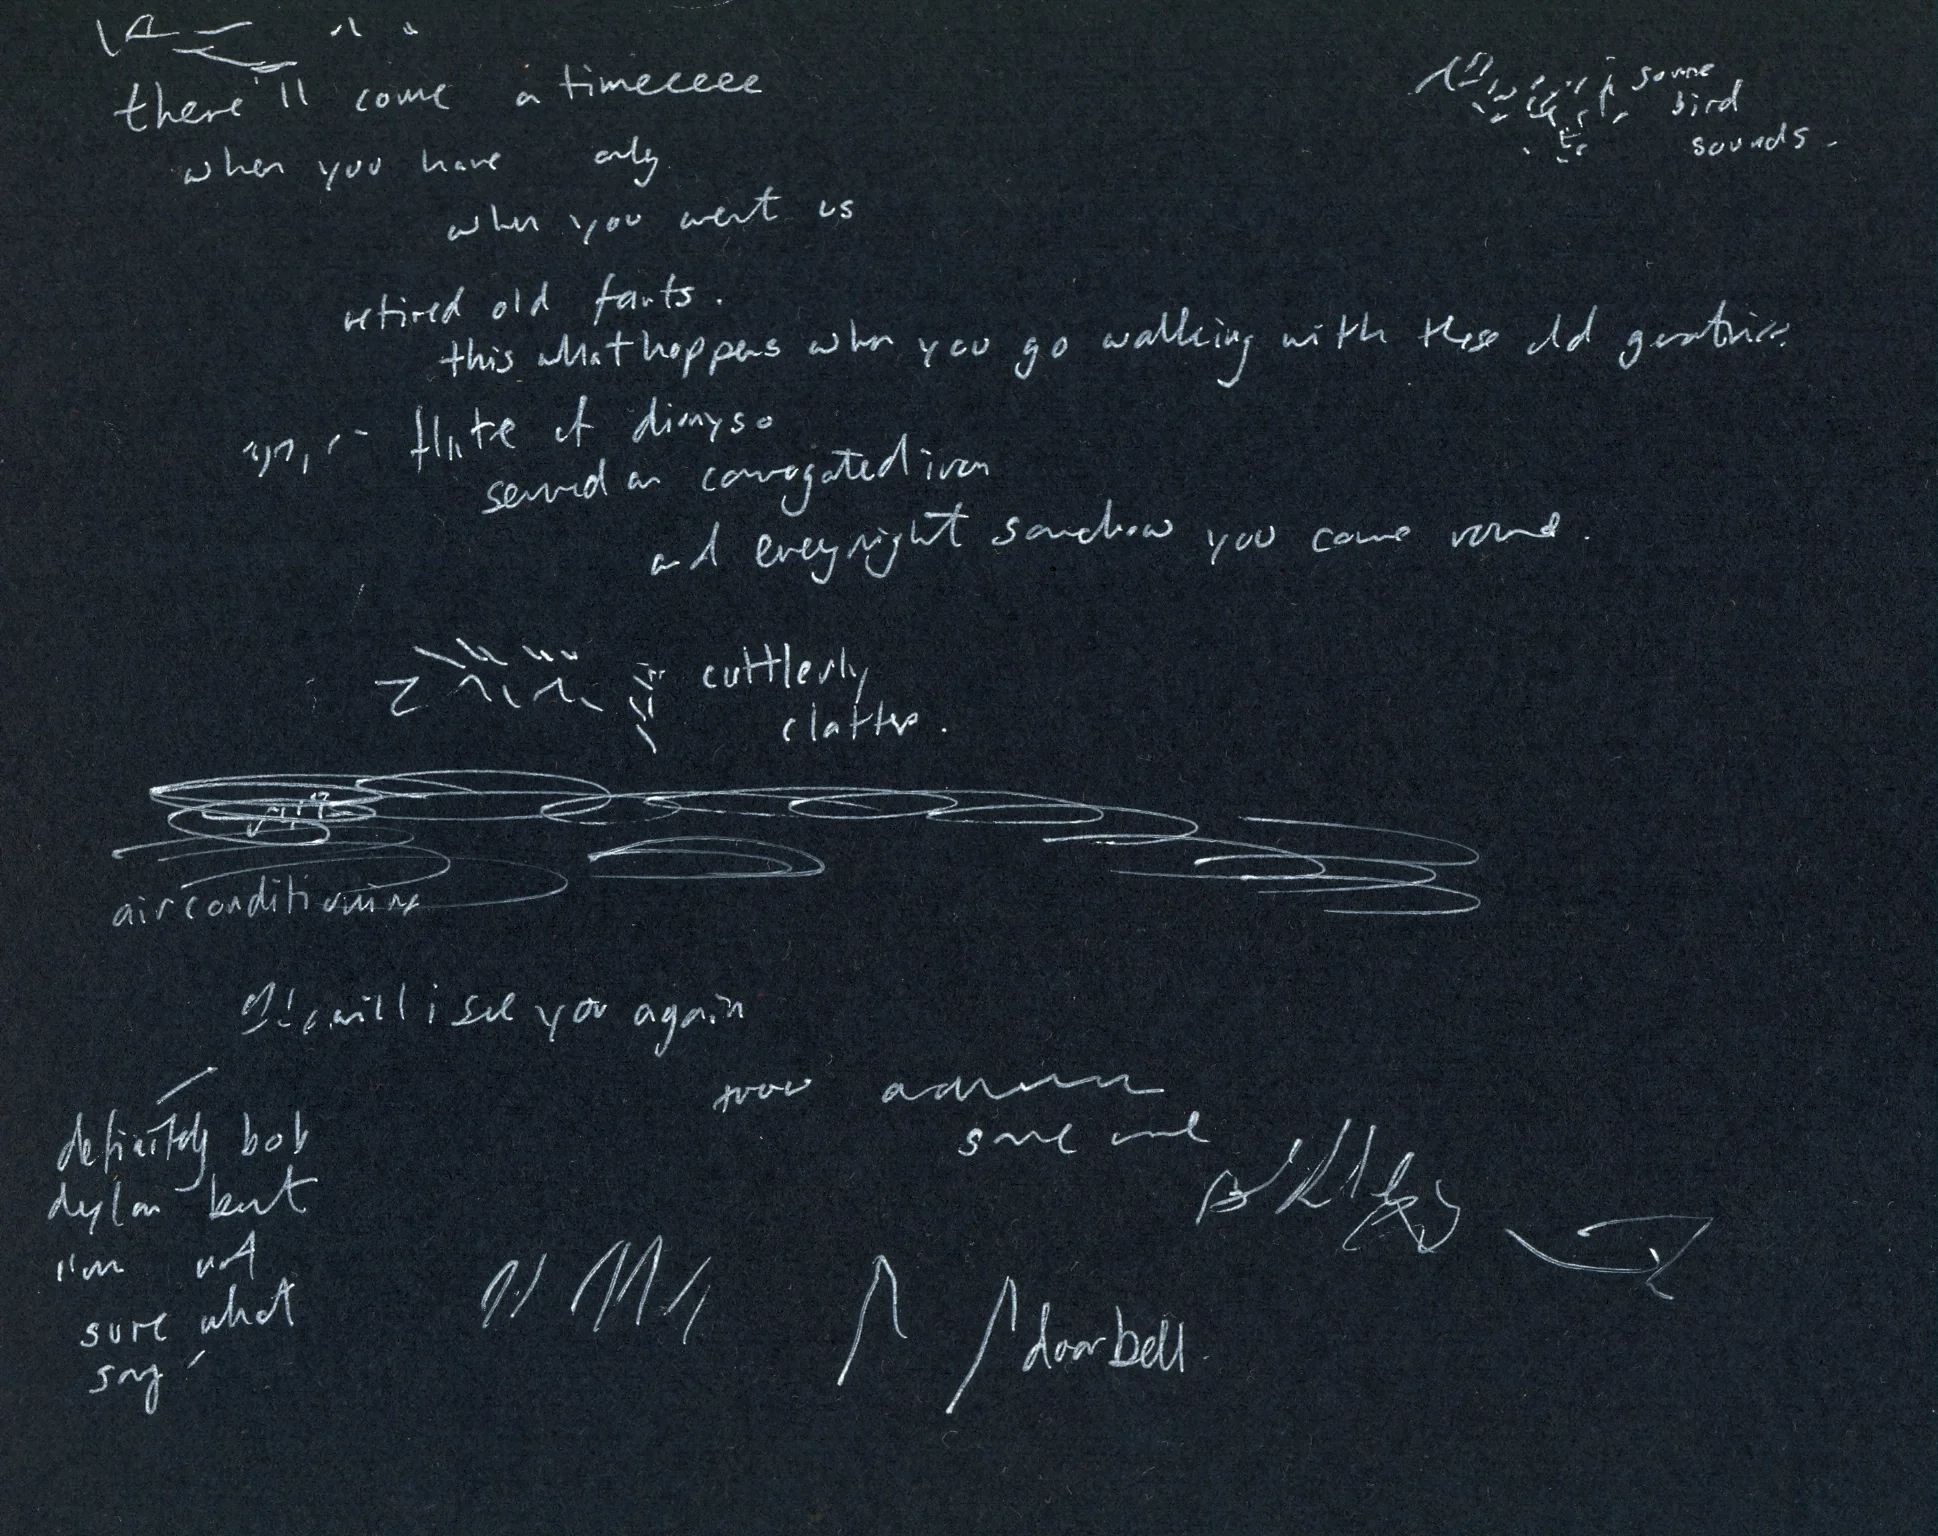 there'll come a timeeeee
some
bird
sounds.
when you have only
when you want us
retired old farts.
this what happens when you go walking with these old geriatrics
flute of dionyso
served on corrogated iron
and every night somehow you come round.
cuttlerly
clatter.
airconditioning
will i see you again
now
some one
definitely bob
dylan but
i'm not
sure what
song
doorbell.